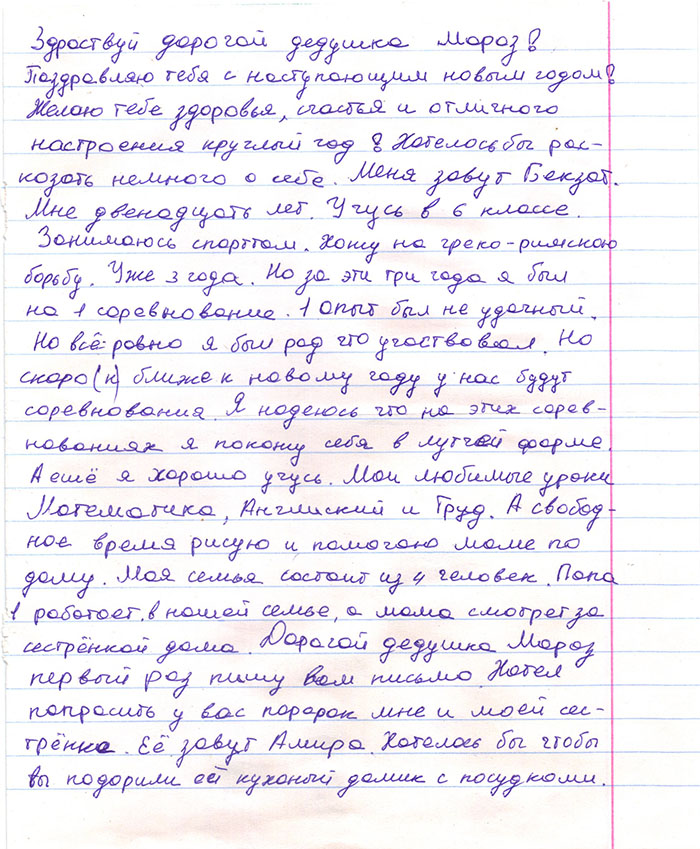 Здраствуй дорогой дедушка Мороз!
Поздравляю тебя с наступающим новым годом!
Желаю тебе здоровья, счастья и отличного
настроения круглый год! Хотелось бы рас-
казать немного о себе. Меня зовут Бекзат.
Мне двенадцать лет. Учусь в 6 классе.
Занимаюсь спорттом. Хожу на греко-римскою
борьбу. Уже 3 года. Но за эти три года я был
на 1 соревнование. 1 опыт был не удачный.
Но всё ровно я был рад что участвовал. Но
скоро (к) ближе к новому году у нас будут
соревнования. Я надеюсь что на этих сорев-
нованиях я покажу себя в лутчей форме.
А ещё я хорошо учусь. Мои любимые уроки
Математика, Англиский и Труд. А свобод-
ное время рисую и помогаю маме по
дому. Моя семья состоит из 4 человек. Папа
1 работает в нашей семье, а мама смотрет за
сестрёнкой дома. Дорогой дедушка Мороз
первый раз пишу вам письмо. Хотел
попросить у вас порарок мне и моей сес-
трёнке. Её зовут Амира. Хотелось бы чтобы
вы подорили ей кухоный домик с посудками.